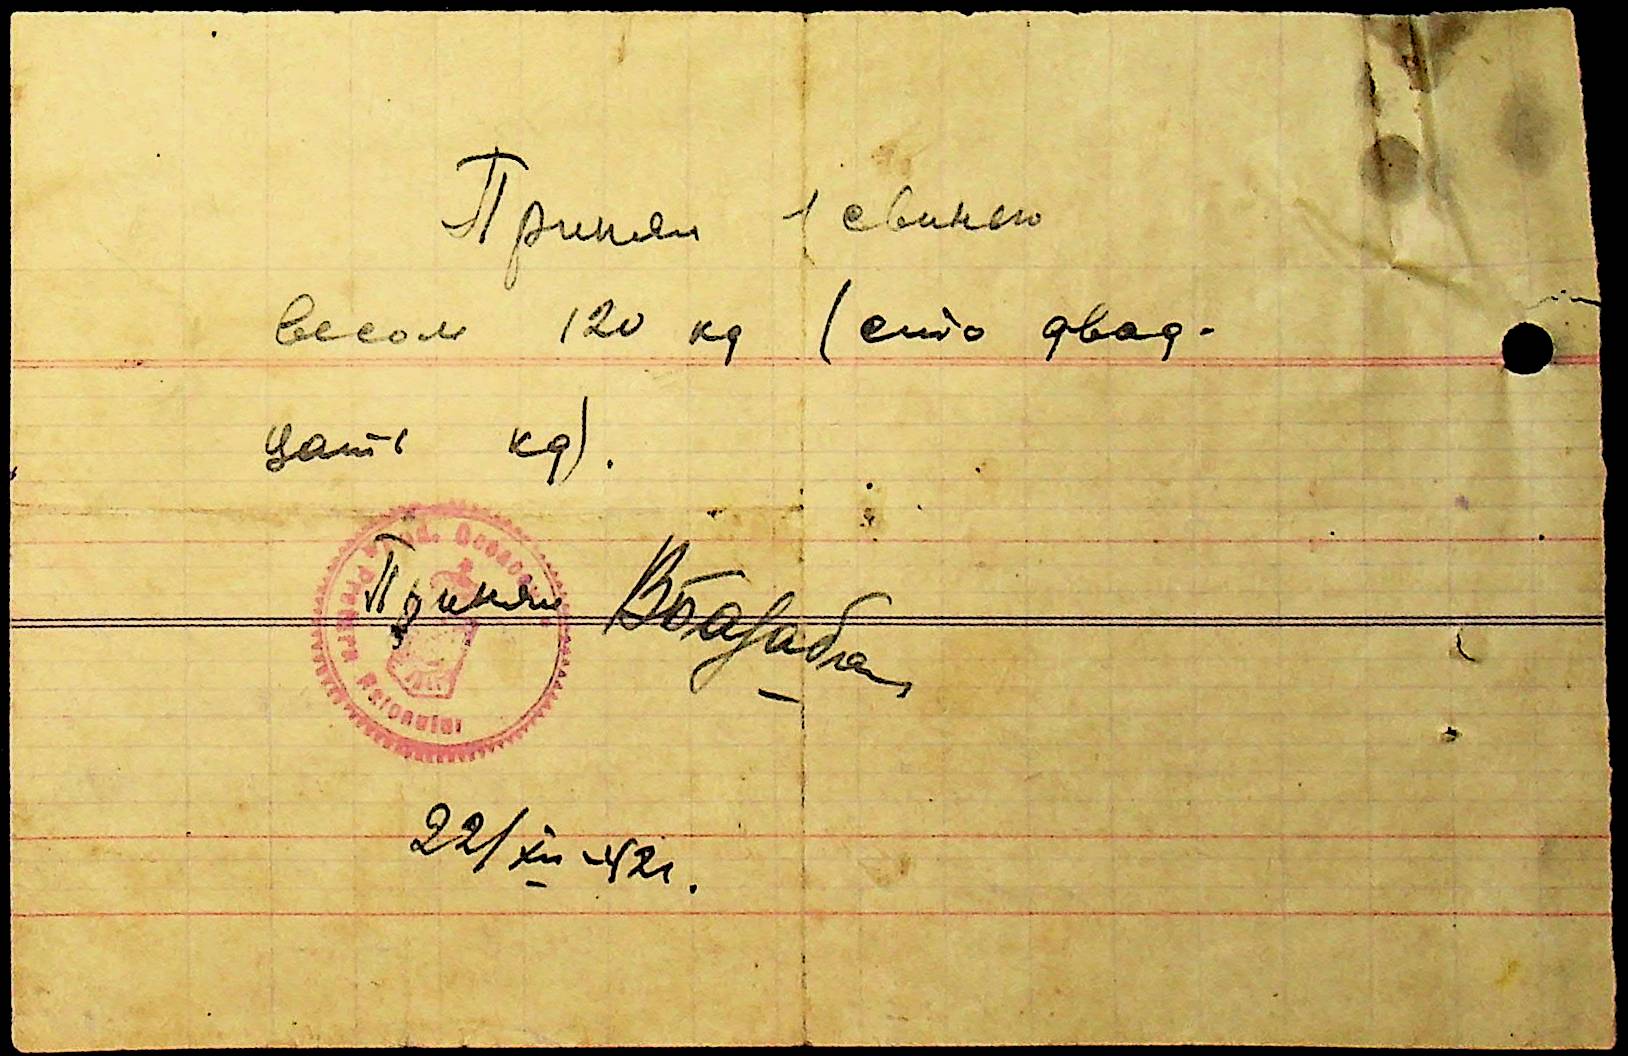 Принял 1 свинью
весом 120 кг (сто двад-
цать кг).
Принял
22/XII-42г.